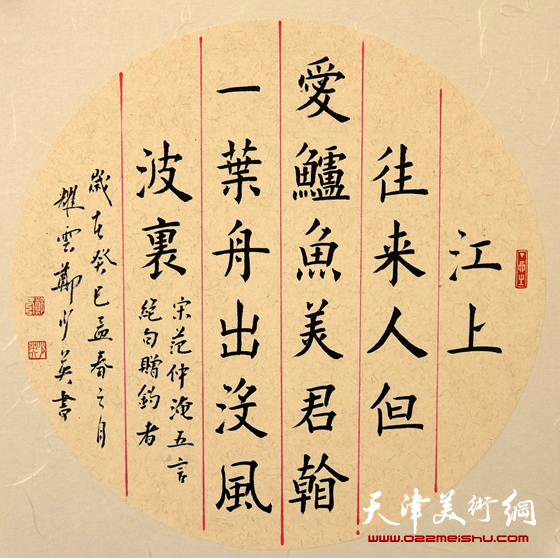 江上
往来人但
愛鱸魚美君看
一葉舟出没風
波裏
宋范仲淹五言
絶句贈釣者
歲在癸巳孟春之月
耀雲鄭少英書
天津美術網
www.022meishu.com